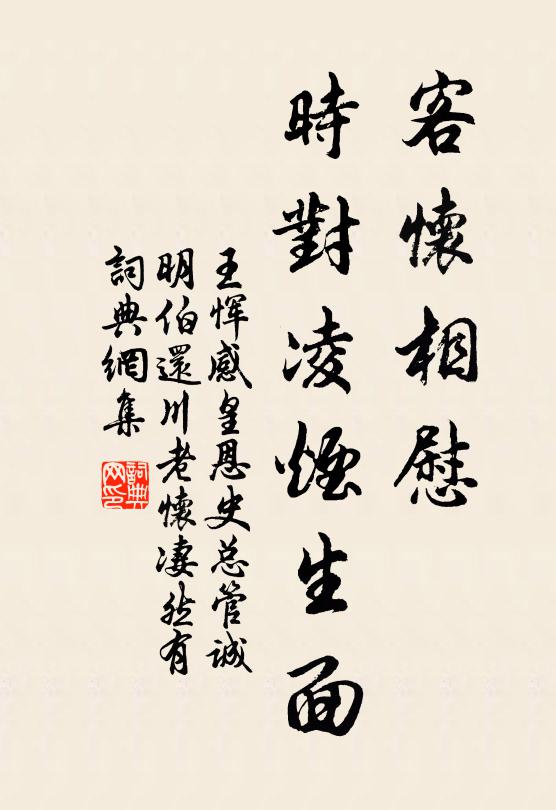 客懷相慰
時對凌煙生面
王惲感皇恩史总管誠
明伯還川老懷凄然有
詞典網集
詞典网印